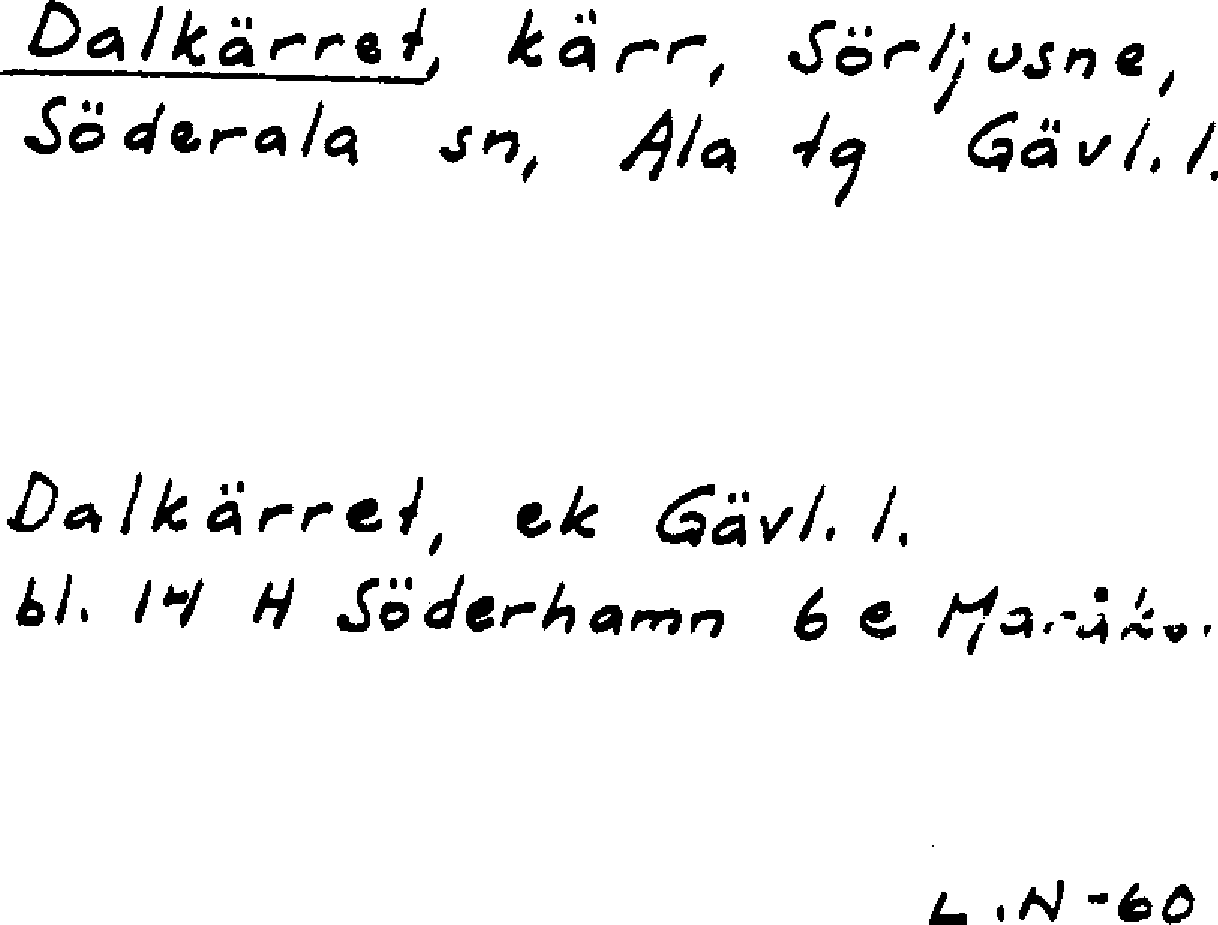 Dalkärret, kärr, Sörljusne,
Söderala sn, Ala tg Gävl. l.
Dalkärret, ek Gävl. l.
bl. 14 H Söderhamn 6 e
L.N -60